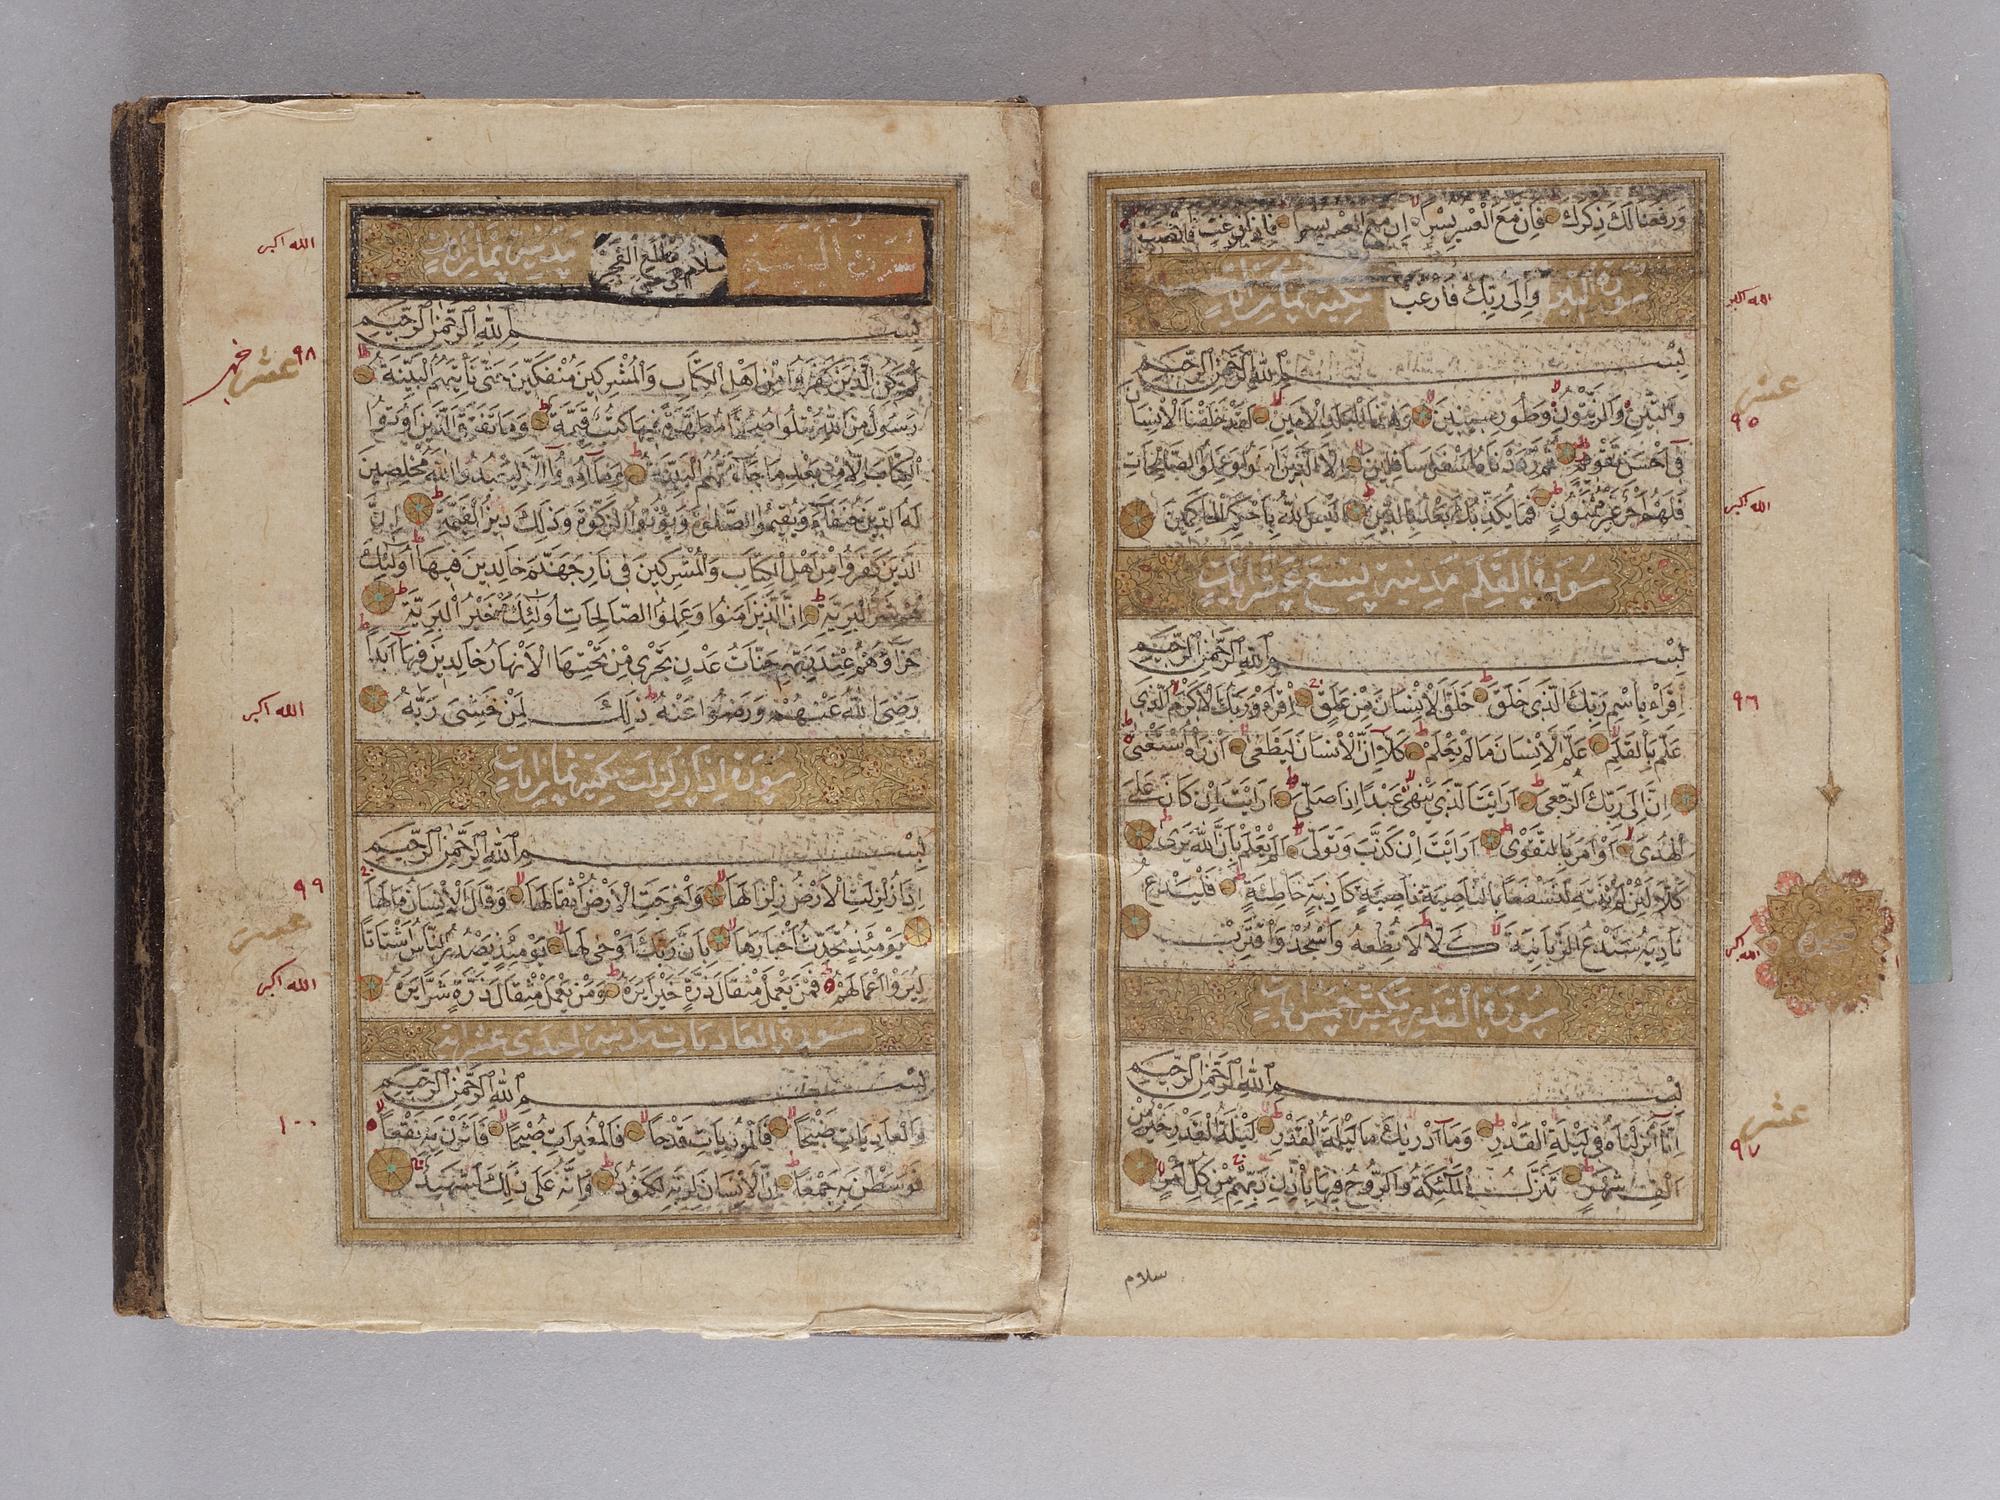 وَرَفَعْنَا لَكَ ذِكْرَكَ فَاِنَّ مَعَ الْعُسْرِ يُسْرًا اِنَّ مَعَ الْعُسْرِ يُسْرًا فَاِذَا فَرَغْتَ فَانْصَبْ
سورة التين وَاِلَى رَبِّكَ فَارْغَبْ مكية ثمان ايات
الله اكبر
بِسْمِ اللّٰهِ الرَّحْمٰنِ الرَّحِيمِ
عشر
وَالتِّينِ وَالزَّيْتُونِ وَطُورِ سِينِينَ وَهٰذَا الْبَلَدِ الْاَمِينِ لَقَدْ خَلَقْنَا الْاِنْسَانَ
٩٥
فِى اَحْسَنِ تَقْوِيمٍ ثُمَّ رَدَدْنَاهُ اَسْفَلَ سَافِلِينَ اِلَّا الَّذِينَ اٰمَنُوا وَعَمِلُوا الصَّالِحَاتِ
فَلَهُمْ اَجْرٌ غَيْرُ مَمْنُونٍ فَمَا يُكَذِّبُكَ بَعْدُ بِالدِّينِ اَلَيْسَ اللّٰهُ بِاَحْكَمِ الْحَاكِمِينَ
الله اكبر
سُورَةُ الْقَلَمِ مَدَنِيَة تِسْعَ عَشَرَ اٰيَات
بِسْمِ اللّٰهِ الرَّحْمٰنِ الرَّحِيمِ
اِقْرَأْ بِاسْمِ رَبِّكَ الَّذِى خَلَقَ خَلَقَ الْاِنْسَانَ مِنْ عَلَقٍ اِقْرَأْ وَرَبُّكَ الْاَكْرَمُ الَّذِى
٩٦
عَلَّمَ بِالْقَلَمِ عَلَّمَ الْاِنْسَانَ مَا لَمْ يَعْلَمْ كَلَّا اِنَّ الْاِنْسَانَ لَيَطْغٰى اَنْ رَاٰهُ اسْتَغْنٰى
اِنَّ اِلٰى رَبِّكَ الرُّجْعٰى اَرَاَيْتَ الَّذِى يَنْهٰى عَبْدًا اِذَا صَلّٰى اَرَاَيْتَ اِنْ كَانَ عَلَى
الْهُدٰى اَوْ اَمَرَ بِالتَّقْوٰى اَرَاَيْتَ اِنْ كَذَّبَ وَتَوَلّٰى اَلَمْ يَعْلَمْ بِاَنَّ اللّٰهَ يَرٰى
كَلَّا لَئِنْ لَمْ يَنْتَهِ لَنَسْفَعًا بِالنَّاصِيَةِ نَاصِيَةٍ كَاذِبَةٍ خَاطِئَةٍ فَلْيَدْعُ
نَادِيَهُ سَنَدْعُ الزَّبَانِيَةَ كَلَّا لَا تُطِعْهُ وَاسْجُدْ وَاقْتَرِبْ
الله اكبر
سُورَةُ الْقَدْرِ مَكِّيَّة خَمْسُ اٰيَات
بِسْمِ اللّٰهِ الرَّحْمٰنِ الرَّحِيمِ
عشر
اِنَّا اَنْزَلْنَاهُ فِى لَيْلَةِ الْقَدْرِ وَمَا اَدْرٰيكَ مَا لَيْلَةُ الْقَدْرِ لَيْلَةُ الْقَدْرِ خَيْرٌ مِنْ
٩٧
اَلْفِ شَهْرٍ تَنَزَّلُ الْمَلٰئِكَةُ وَالرُّوحُ فِيهَا بِاِذْنِ رَبِّهِمْ مِنْ كُلِّ اَمْرٍ
سلام
سورة البينة سلام هى حتى مطلع الفجر مدنية ثمان ايات
الله اكبر
بِسْمِ اللّٰهِ الرَّحْمٰنِ الرَّحِيمِ
٩٨ عشر
لَمْ يَكُنِ الَّذِينَ كَفَرُوا مِنْ اَهْلِ الْكِتَابِ وَالْمُشْرِكِينَ مُنْفَكِّينَ حَتّٰى تَاْتِيَهُمُ الْبَيِّنَةُ
رَسُولٌ مِنَ اللّٰهِ يَتْلُوا صُحُفًا مُطَهَّرَةً فِيهَا كُتُبٌ قَيِّمَةٌ وَمَا تَفَرَّقَ الَّذِينَ اُوتُوا
الْكِتَابَ اِلَّا مِنْ بَعْدِ مَا جَاءَتْهُمُ الْبَيِّنَةُ وَمَا اُمِرُوا اِلَّا لِيَعْبُدُوا اللّٰهَ مُخْلِصِينَ
لَهُ الدِّينَ حُنَفَاءَ وَيُقِيمُوا الصَّلٰوةَ وَيُؤْتُوا الزَّكٰوةَ وَذٰلِكَ دِينُ الْقَيِّمَةِ اِنَّ
الَّذِينَ كَفَرُوا مِنْ اَهْلِ الْكِتَابِ وَالْمُشْرِكِينَ فِى نَارِ جَهَنَّمَ خَالِدِينَ فِيهَا اُولٰئِكَ
هُمْ شَرُّ الْبَرِيَّةِ اِنَّ الَّذِينَ اٰمَنُوا وَعَمِلُوا الصَّالِحَاتِ اُولٰئِكَ هُمْ خَيْرُ الْبَرِيَّةِ
جَزَاؤُهُمْ عِنْدَ رَبِّهِمْ جَنَّاتُ عَدْنٍ تَجْرِى مِنْ تَحْتِهَا الْاَنْهَارُ خَالِدِينَ فِيهَا اَبَدًا
رَضِىَ اللّٰهُ عَنْهُمْ وَرَضُوا عَنْهُ ذٰلِكَ لِمَنْ خَشِىَ رَبَّهُ
الله اكبر
سُورَةُ اِذَا زُلْزِلَتْ مَكِّيَّة ثَمَان اٰيَات
بِسْمِ اللّٰهِ الرَّحْمٰنِ الرَّحِيمِ
اِذَا زُلْزِلَتِ الْاَرْضُ زِلْزَالَهَا وَاَخْرَجَتِ الْاَرْضُ اَثْقَالَهَا وَقَالَ الْاِنْسَانُ مَا لَهَا
٩٩
عشر
يَوْمَئِذٍ تُحَدِّثُ اَخْبَارَهَا بِاَنَّ رَبَّكَ اَوْحٰى لَهَا يَوْمَئِذٍ يَصْدُرُ النَّاسُ اَشْتَاتًا
لِيُرَوْا اَعْمَالَهُمْ فَمَنْ يَعْمَلْ مِثْقَالَ ذَرَّةٍ خَيْرًا يَرَهُ وَمَنْ يَعْمَلْ مِثْقَالَ ذَرَّةٍ شَرًّا يَرَهُ
الله اكبر
سورة العاديات مدنية احدى عشر اية
بِسْمِ اللّٰهِ الرَّحْمٰنِ الرَّحِيمِ
وَالْعَادِيَاتِ ضَبْحًا فَالْمُورِيَاتِ قَدْحًا فَالْمُغِيرَاتِ صُبْحًا فَاَثَرْنَ بِهِ نَقْعًا
١٠٠
فَوَسَطْنَ بِهِ جَمْعًا اِنَّ الْاِنْسَانَ لِرَبِّهِ لَكَنُودٌ وَاِنَّهُ عَلٰى ذٰلِكَ لَشَهِيدٌ